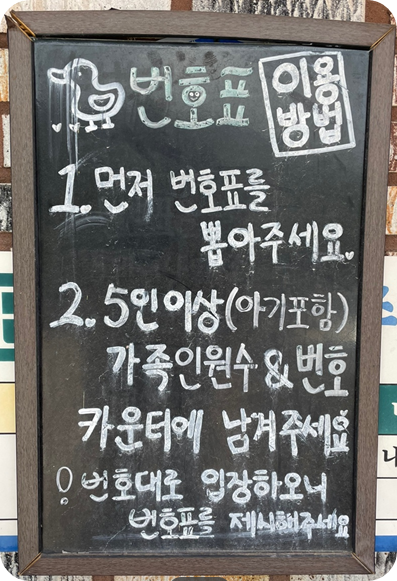 번호표 이용방법
1. 먼저 번호표를
뽑아주세요.
2. 5인이상(아기포함)
가족인원수 & 번호
카운터에 남겨주세요
! 번호대로 입장하오니
번호표를 제시해주세요